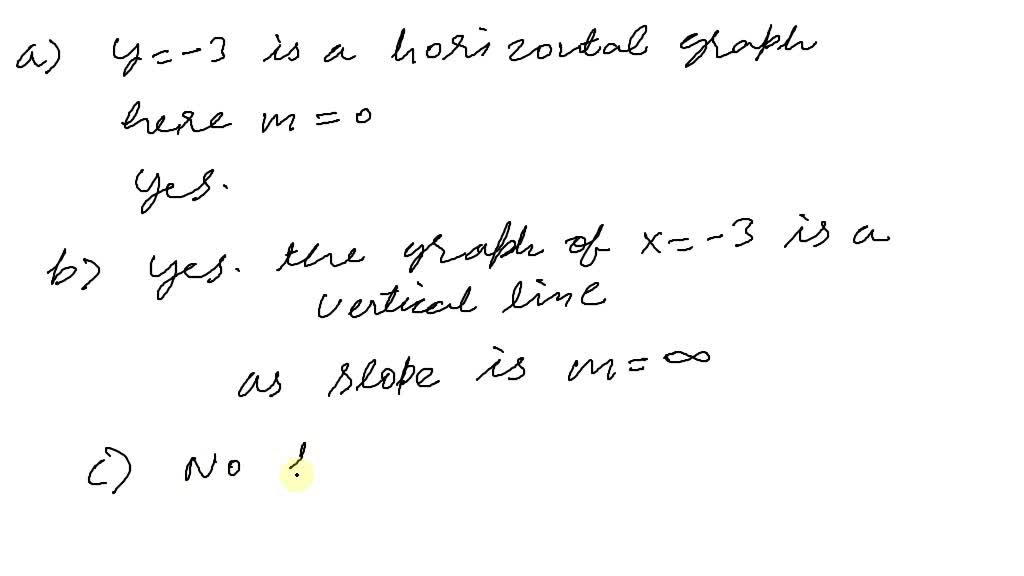 a) y=-3 is a horizontal graph
here m=0
yes.
b) yes. the graph of x=-3 is a
vertical line
as slope is m=∞
c) No !